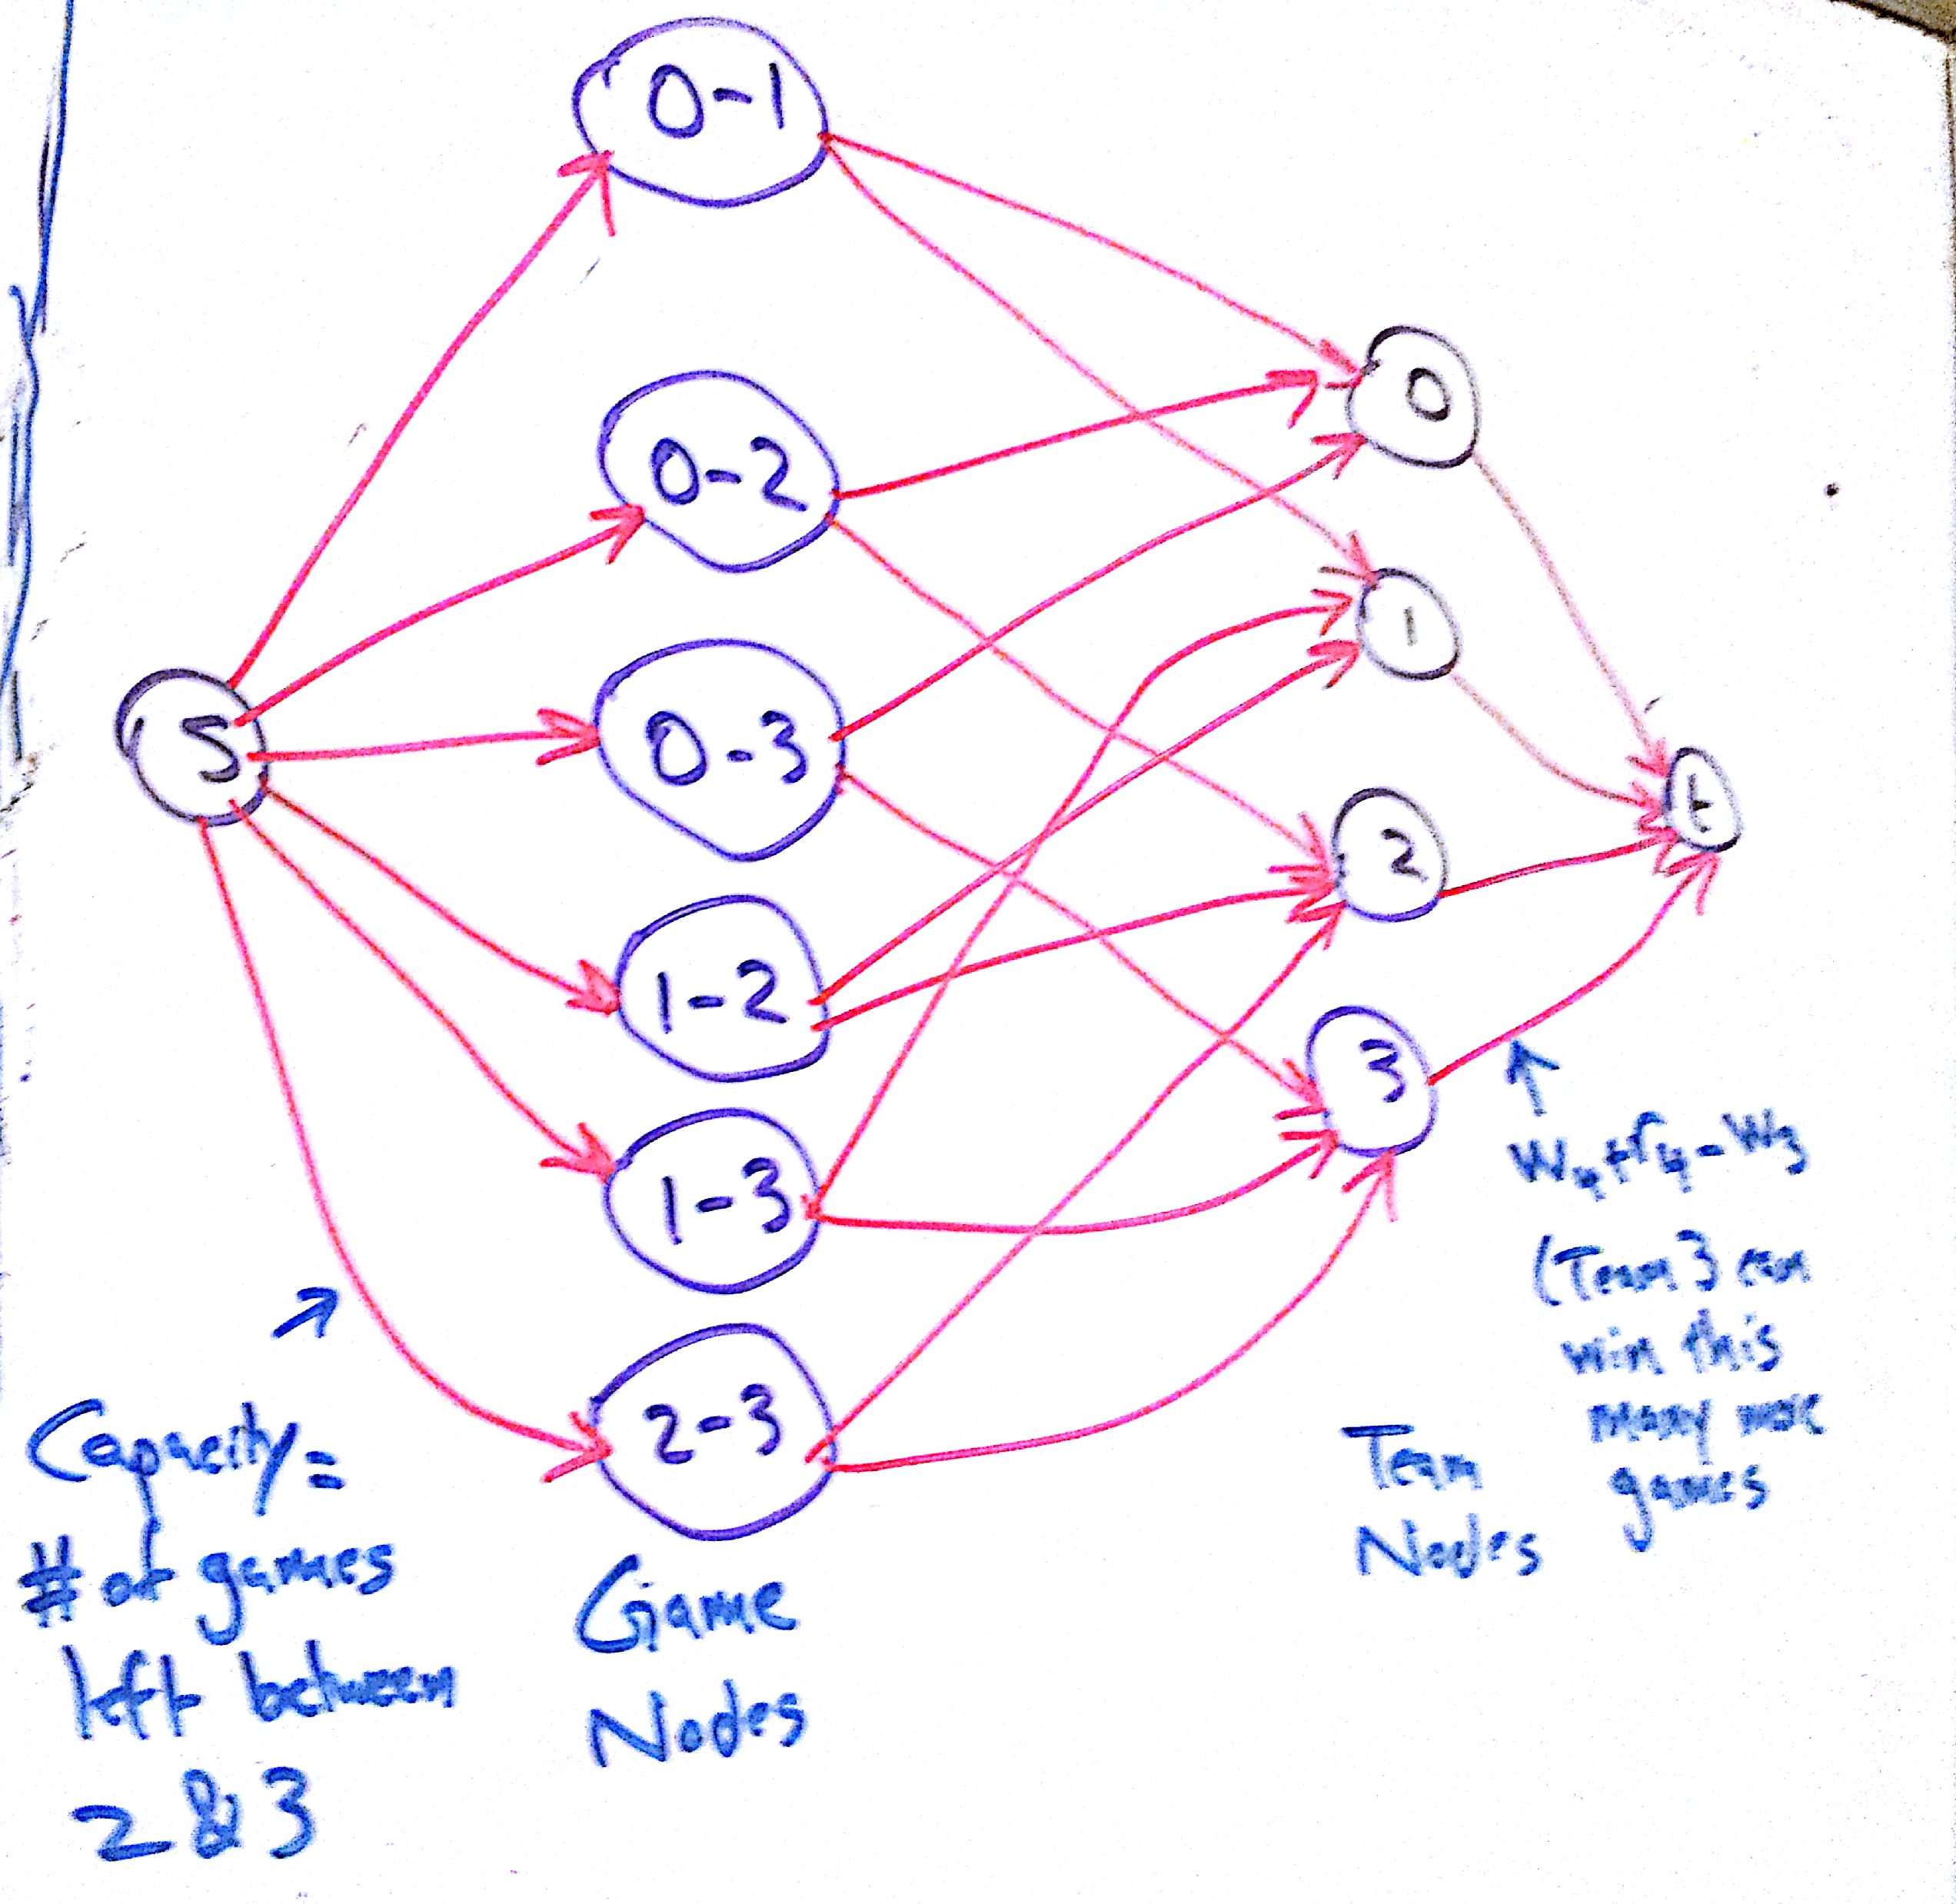 0-1
0-2
0-3
1-2
1-3
2-3
S
0
1
2
3
t
Capacity=
# of games
left between
2 & 3
Game
Nodes
Team
Nodes
W4+r4-W3
(Team 3 can
win this
many more
games